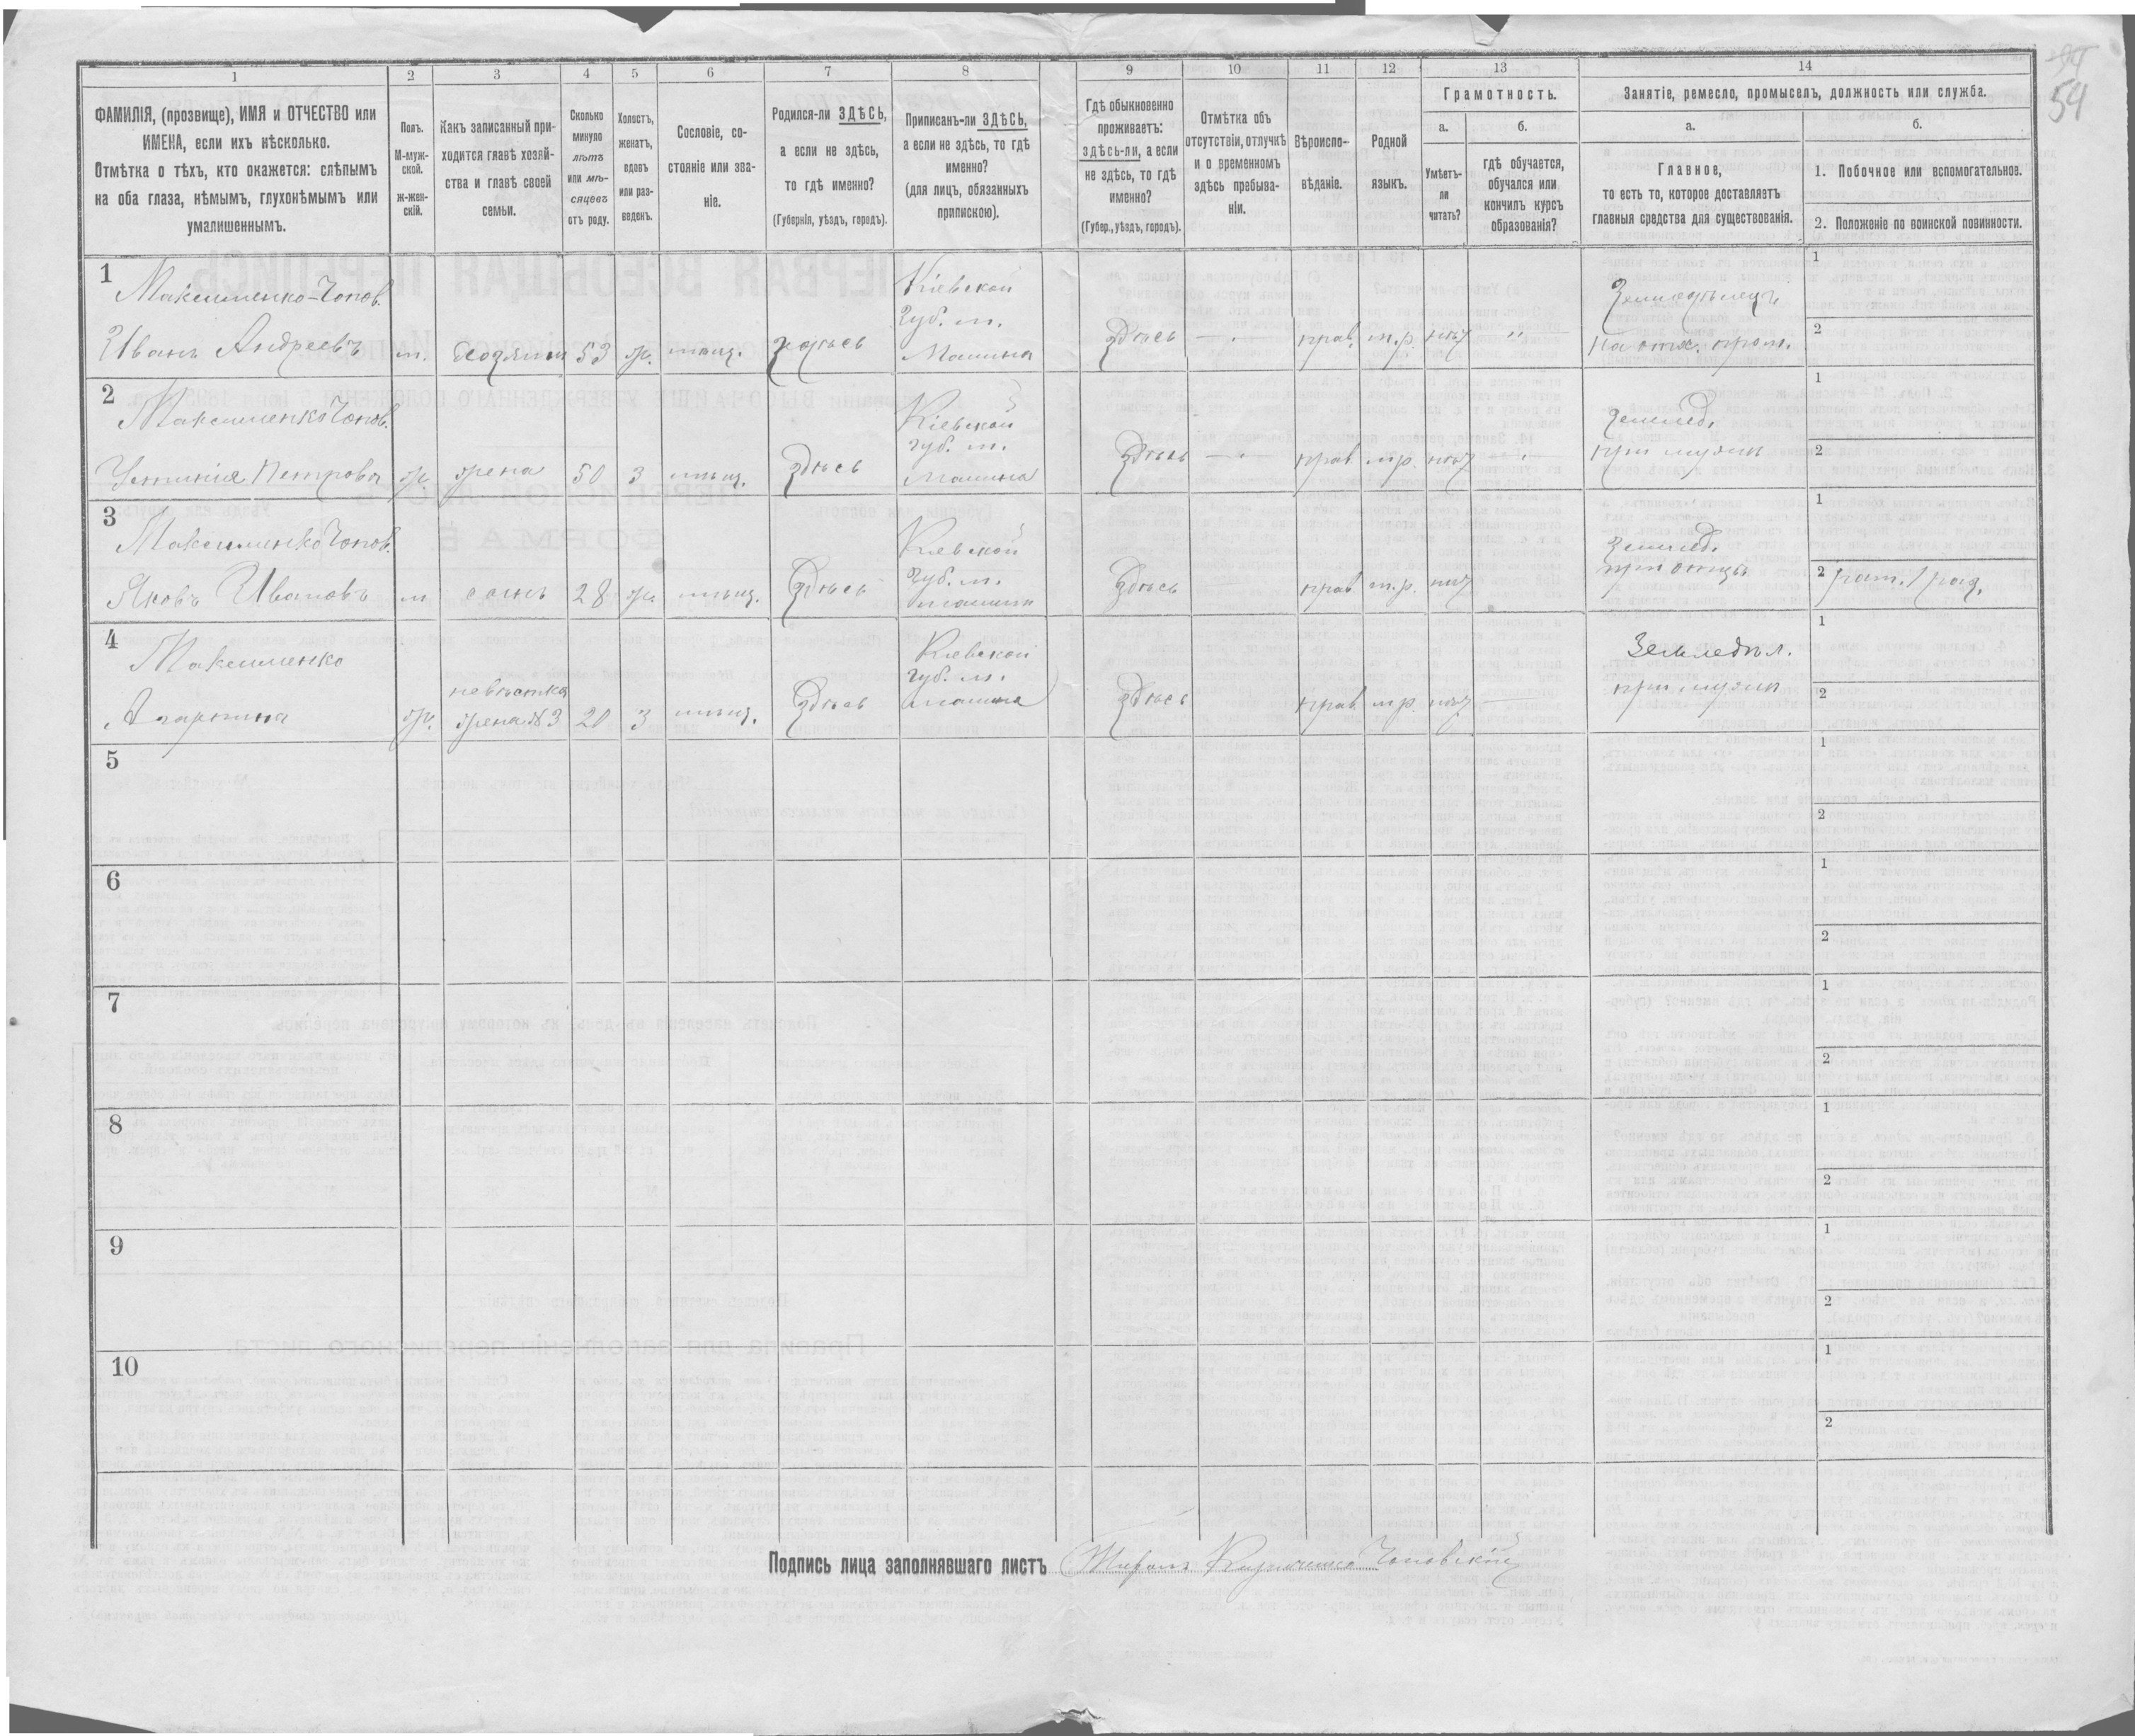 54
1
2
3
4
5
6
7
8
9
10
11
12
13
14
ФАМИЛІЯ, (прозвище), ИМЯ и ОТЧЕСТВО или
ИМЕНА, если ихъ нѣсколько.
Отмѣтка о тѣхъ, кто окажется: слѣпымъ
на оба глаза, нѣмымъ, глухонѣмымъ или
умалишеннымъ.
Полъ.
М-муж-
ской.
ж-жен-
скій.
Какъ записанный при-
ходится главѣ хозяй-
ства и главѣ своей
семьи.
Сколько
минуло
лѣтъ
или мѣ-
сяцевъ
отъ роду.
Холостъ,
женатъ,
вдовъ
или раз-
веденъ.
Сословіе, со-
стояніе или зва-
ніе.
Родился-ли ЗДѢСЬ,
а если не здѣсь,
то гдѣ именно?
(Губернія, уѣздъ, городъ).
Приписанъ-ли ЗДѢСЬ,
а если не здѣсь, то гдѣ
именно?
(для лицъ, обязанныхъ
припискою).
Гдѣ обыкновенно
проживаетъ:
здѣсь-ли, а если
не здѣсь, то гдѣ
именно?
(Губер., уѣздъ, городъ).
Отмѣтка объ
отсутствіи, отлучкѣ
и о временномъ
здѣсь пребыва-
ніи.
Вѣроиспо-
вѣданіе.
Родной
языкъ.
Грамотность.
а.
Умѣетъ-
ли
читать?
б.
гдѣ обучается,
обучался или
кончилъ курсъ
образованія?
Занятіе, ремесло, промыселъ, должность или служба.
а.
Главное,
то есть то, которое доставляетъ
главныя средства для существованія.
б.
1. Побочное или вспомогательное.
2. Положеніе по воинской повинности.
1
Максименко-Чопов.
Кіевской
Губ. м.
Земледѣлецъ
1
Иванъ Андреевъ м. хозяинъ 53 ж. мѣщ. здѣсь Малина Здѣсь — прав. м.р. нѣт "
2
2
Максименко Чопов.
Кіевской
Губ. м.
Землед.
1
Устинія Петровна ж. жена 50 з мѣщ. Здѣсь Малина Здѣсь — прав. м.р. нѣт — при мужѣ
2
3
Максименко Чопов.
Кіевской
Губ. м.
Землед.
1
Яковъ Ивановъ м сынъ 28 ж. мѣщ. Здѣсь Малина Здѣсь прав. м.р. нѣт при отцѣ
2
4
Максименко
Кіевской
Губ. м.
Земледѣл.
1
невѣстка
ж. жена №3 20 з мѣщ. Здѣсь Малина Здѣсь прав. м.р. нѣт — при мужѣ
2
5
1
2
6
1
2
7
1
2
8
1
2
9
1
2
10
1
2
Подпись лица заполнявшаго листъ Чоповскій